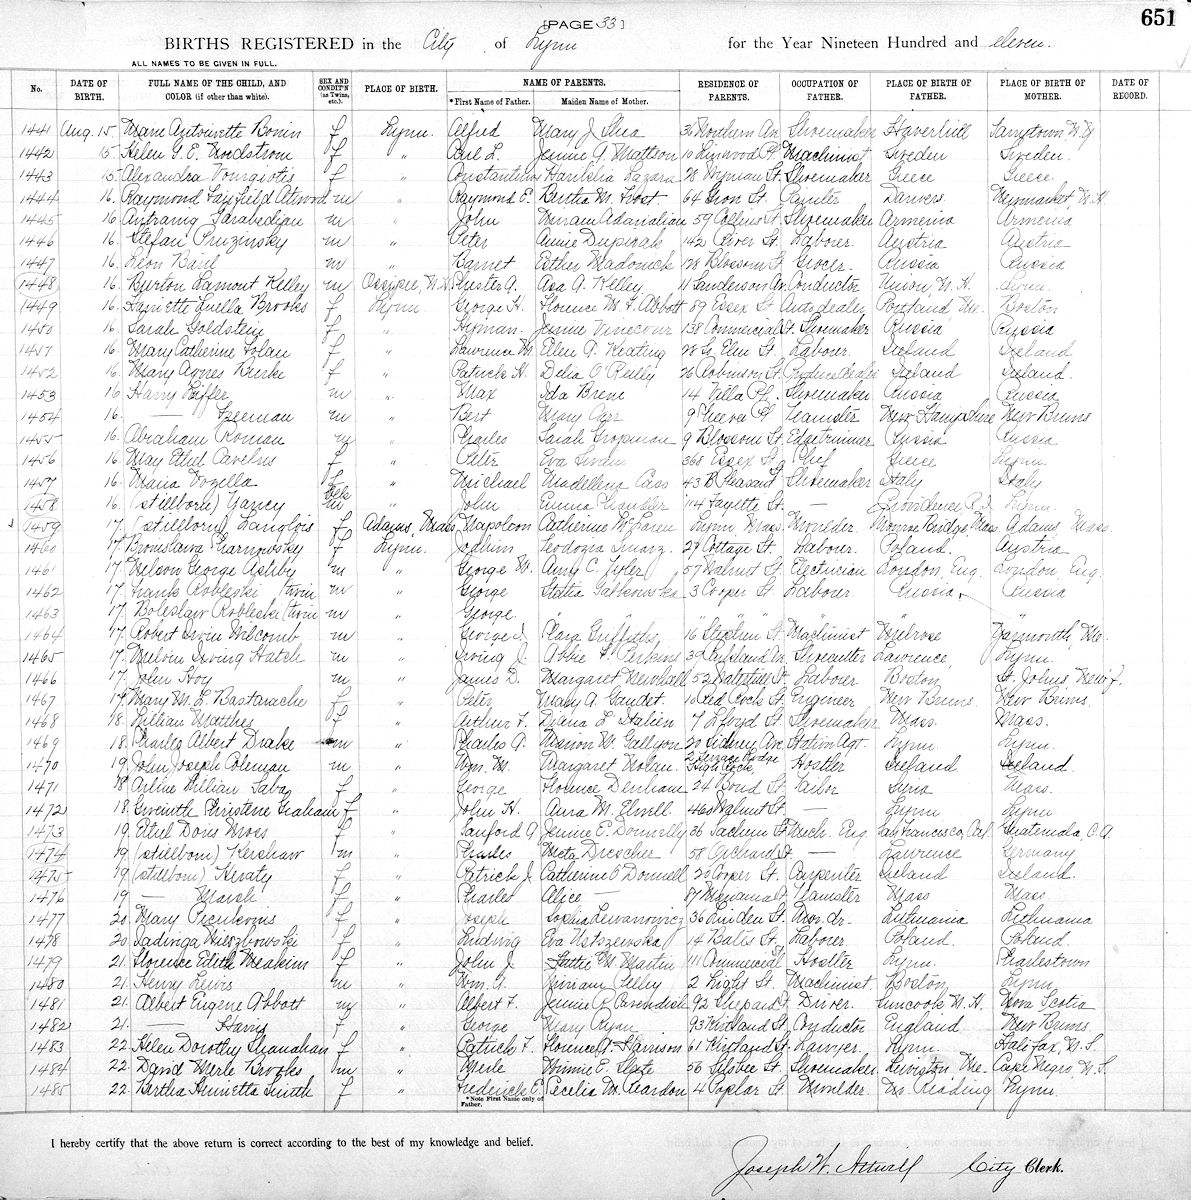 [PAGE 33]
651
BIRTHS REGISTERED in the City of Lynn for the Year Nineteen Hundred and eleven.
ALL NAMES TO BE GIVEN IN FULL.
No. DATE OF BIRTH. FULL NAME OF THE CHILD, AND COLOR (if other than white). SEX AND CONDIT'N (as Twins, etc.) PLACE OF BIRTH. NAME OF PARENTS. *First Name of Father. Maiden Name of Mother. RESIDENCE OF PARENTS. OCCUPATION OF FATHER. PLACE OF BIRTH OF FATHER. PLACE OF BIRTH OF MOTHER. DATE OF RECORD.
1441 Aug. 15 Marie Antoinette Bonin f Lynn. Alfred Mary J Shea 36 Northern Av Shoemaker Haverhill Jamestown N.Y
1442 15 Helen G. E. Nordstrom f " Carl L. Jennie A. Mattson 10 Linwood Pl Machinist Sweden Sweden.
1443 15 Alexandra f " 28 Wyman St. Shoemaker Greece Greece.
1444 16. Raymond Fairfield Atwood m " Raymond E. Bertha M. Frost 64 Green St. Painter Danvers Newmarket, N.H.
1445 16. Antranig Sarabedian m " John Miriam Adanalian 59 Collins St. Shoemaker Armenia Armenia
1446 16. Stefan Pruzinsky m " Peter Annie 142 River St. Laborer. Austria Austria
1447 16. Leon Baril m " Barnet Esther 178 Blossom St Grocer. Russia Russia
1448 16. Burton Lamont Kelley m Ossipee, N.H. Chester A. Asa A. Kelley 11 Sanderson Av. Conductor Union N.H.
1449 16. Harriette Luella Brooks f Lynn. George H. Florence M. F. Abbott 89 Essex St. Auto dealer Portland Me. Boston
1450 16. Sarah Goldstein f " Hyman. Jennie Vinecour 138 Commercial St. Shoemaker Russia Russia
1451 16. Mary Catherine Folan f " Lawrence M. Ellen A. Keating 28 So. Elm St. Laborer. Ireland Ireland
1452 16. Mary Agnes Burke f " Patrick H. Delia O'Reilly 26 Robinson St. Produce dealer Ireland Ireland.
1453 16 Harry Liffler m " Max Ida Brene 14 Villa Pl. Shoemaker Russia Russia
1454 16. — Freeman m " Bert Mary Agr 9 Pl Teamster New Hampshire New Bruns
1455 16. Abraham Roman m " Charles Sarah Gropman 9 Blossom St. Edgetrimmer Russia Russia
1456 16. May Ethel f " Peter Eva 365 Essex St. Chef Greece Lynn.
1457 16. Maria Vozella f " Michael Madellena Cass 43 B Pleasant St. Shoemaker Italy Italy
1458 16. (stillborn) Yancy m blk " John Emma Chandler 114 Fayette St. — Providence R.I. Lynn.
1459 17. (stillborn) Langlois f Adams, Mass. Napoleon Catherine Lynn Mass. Moulder. Monroe Bridge, Mass. Adams Mass.
1460 17. Bronislawa Charnowsky f Lynn. 27 Cottage St. Laborer. Poland. Austria
1461 17. Nelson George Ashby m " George W. Amy C. Tyler 57 Walnut St. Electrician London, Eng. London, Eng.
1462 17. Frank Robleski (twin m " George Statia 3 Cooper St. Laborer Russia. Russia
1463 17. Boleslaw Robleski (twin m " George. " " " " "
1464 17. Robert Irvin Milcomb m " George I. Clara Griffiths 16 Stephen St. Machinist Melrose Yarmouth, Me.
1465 17. Melvin Irving Hatch m " Irving J. Abbie F. Perkins 39 Parkland Av. Shoecutter Lawrence, Lynn.
1466 17. John Hoy m " James D. Margaret Newhall 52 Waterhill St. Laborer Boston St. Johns New'f.
1467 17. Mary M. L. Bastarache f " Peter Mary A. Gaudet. 10 Red Rock St. Engineer New Bruns. New Bruns.
1468 18. Lillian Matthes f " Arthur F. Diana L Italien 7 Lloyd St. Shoemaker Mass. Mass.
1469 18. Charles Albert Drake m " Charles A. Marion W. Gallyon 20 Sidney Ave. Station Agt. Lynn. Lynn.
1470 19. John Joseph Coleman m " Wm. M. Margaret Nolan. 2 Lodge High Rock. Hostler Ireland Ireland.
1471 18 Arline Lillian Saba f " George Florence Denham 24 Bond St. Tailor Syria Mass.
1472 18. Gwenith Christene Graham f " John H. Anna M. Elwell 460 Walnut St. — Lynn Lynn
1473 19. Ethel Doris Moss f " Sanford A. Jennie E. Donnelly 36 Sachem St. Mech. Eng San Francisco, Cal. Guatemala, C.A.
1474 19 (stillborn) Kershaw m " Charles Meta Drescher 58 Orchard St. — Lawrence Germany
1475 19 (stillborn) Heraty f " Patrick J. Catherine O'Donnell 20 Cooper St. Carpenter Ireland Ireland.
1476 19 — Marsh f " Charles Alice — 87 St. Teamster Mass Mass.
1477 20. Mary f " Joseph Sophia Lewanowicz 36 Linden St. Lithuania Lithuania
1478 20 Jadwiga Wierzbowski f " Ludwig Eva 14 Bates St. Laborer. Poland. Poland.
1479 21. Florence Edith Meakin f " John J. Hattie M. Martin 111 Commercial Hostler Lynn. Charlestown
1480 21. Henry Lewis m " Wm. A. Miriam Kelley 2 Light St. Machinist Boston Lynn
1481 21. Albert Eugene Abbott m " Albert F. Jennie R. Cavendish 92 Shepard St. Driver. Suncook N.H. Nova Scotia
1482 21. — Harris f " George Mary Ryan 93 Kirtland St. Conductor England New Bruns
1483 22. Helen Dorothy Shanahan f " Patrick F. Florence A. Harrison 61 Kirtland St. Lawyer. Lynn. Halifax, N.S.
1484 22. David Merle Brooks m " Merle Minnie E. Slate 56 Silsbee St. Shoemaker Lewiston Me Cape Negro, N.S.
1485 22 Bertha Henrietta Smith f " Frederick E. Cecelia M. Reardon 4 Poplar St. Moulder. No. Reading Lynn.
*Note First Name only of Father.
I hereby certify that the above return is correct according to the best of my knowledge and belief.
Joseph W. Attwill City Clerk.